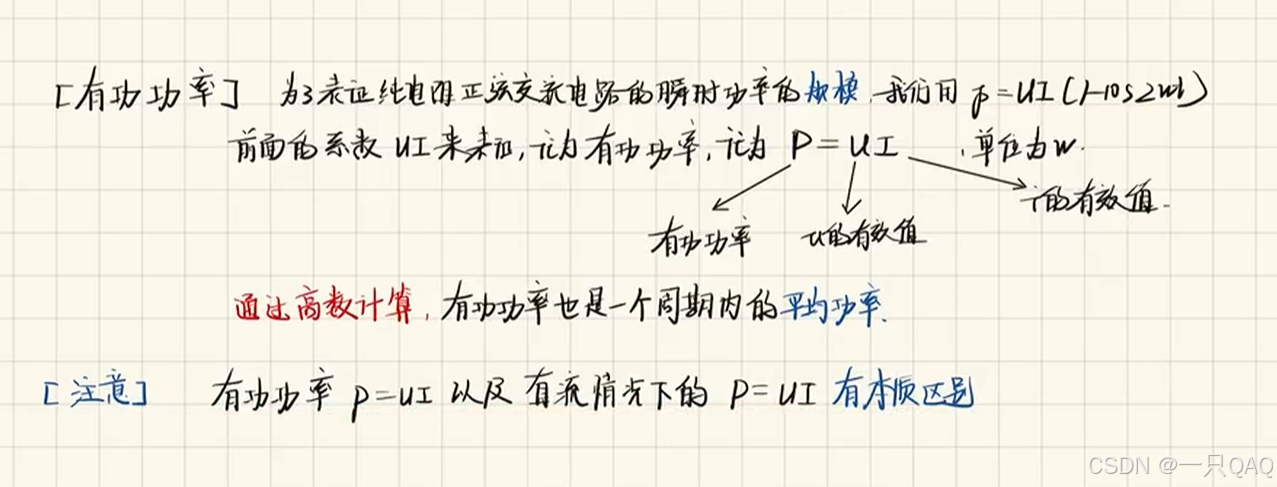 [有功功率] 为了表征纯电阻正弦交流电路的瞬时功率的规模,我们用 p=UI(1-cos2wt)
前面的系数 UI来表征,记为有功功率,记为 P=UI ,单位为w.
i的有效值.
有功功率 u的有效值
通过高数计算,有功功率也是一个周期内的平均功率.
[注意] 有功功率 P=UI 以及 直流情况下的 P=UI 有本质区别
CSDN @一只QAQ